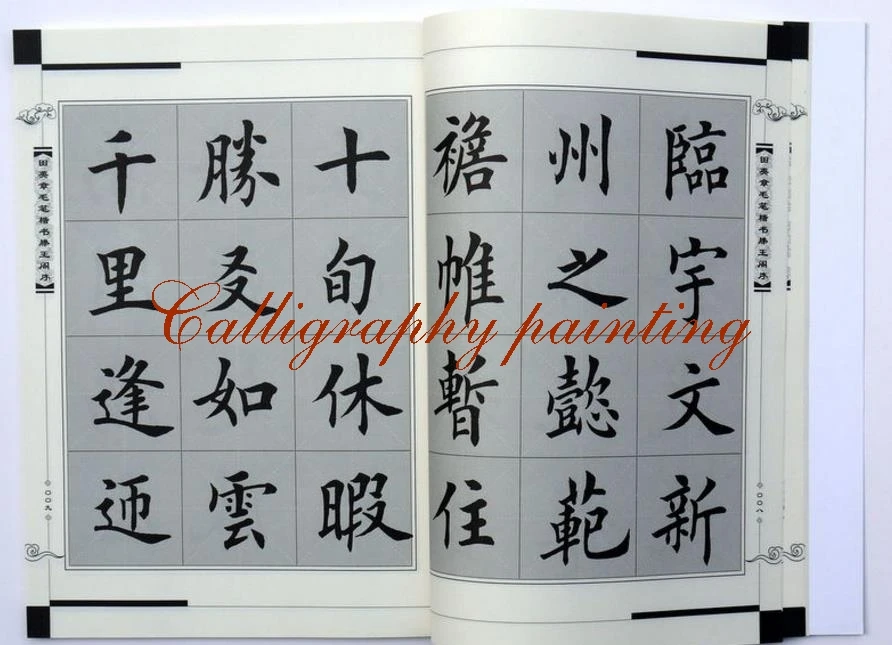 田英章毛笔楷书滕王阁序
〇〇八
臨宇文新
州之懿範
襜帷暫住
十旬休暇
勝叐如雲
千里逢迊
田英章毛笔楷书滕王阁序
〇〇九
Calligraphy painting